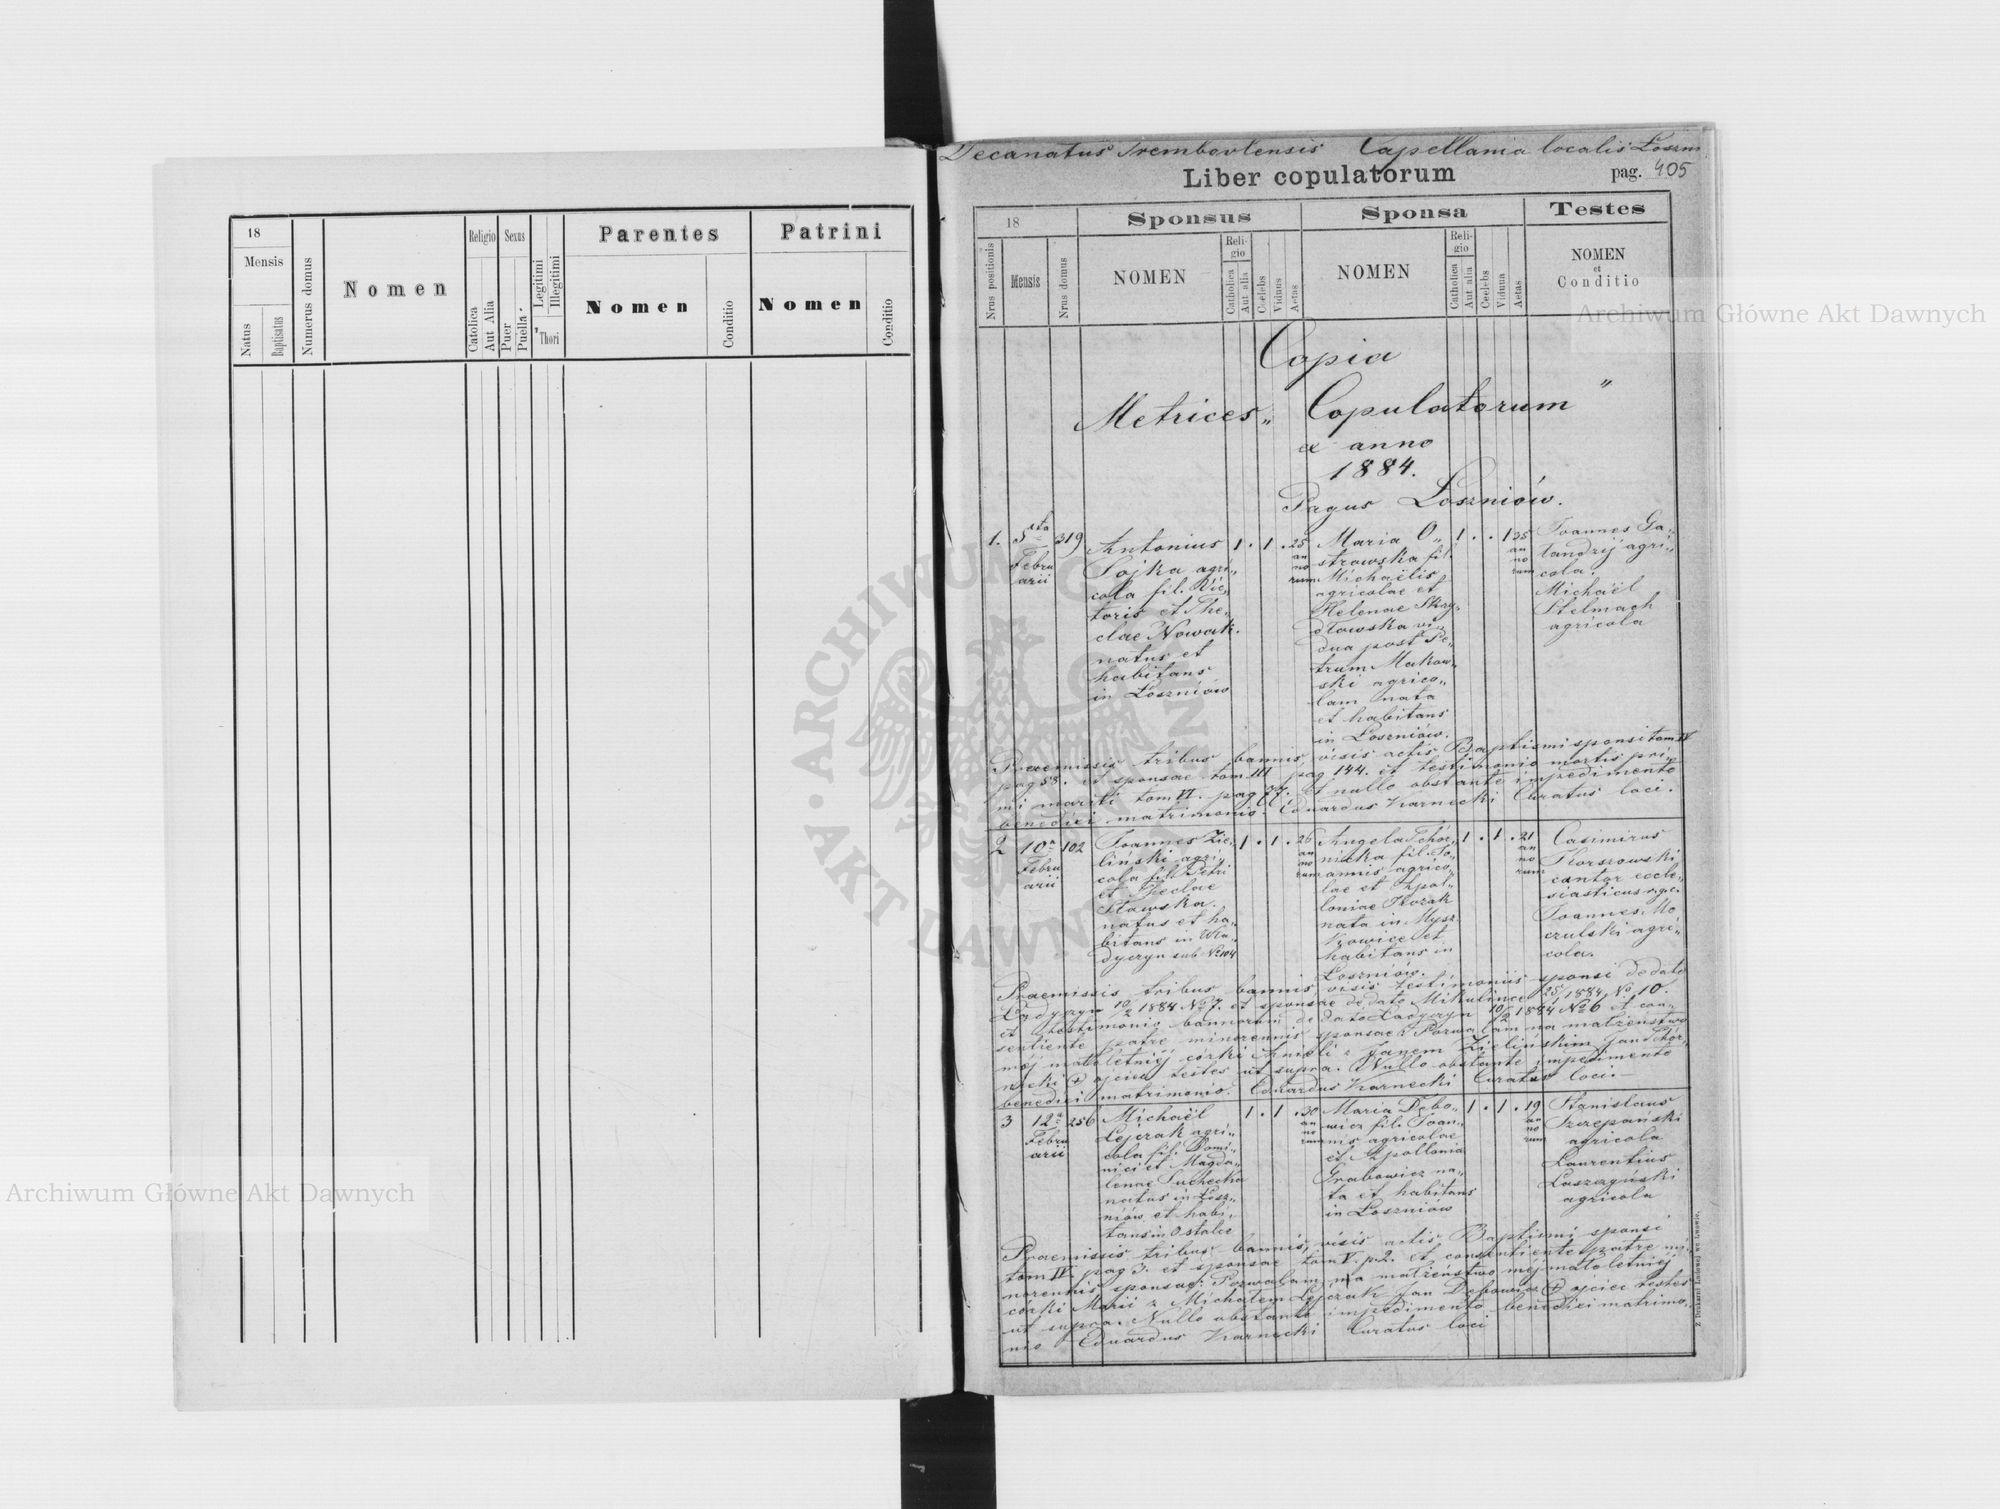 18
Mensis
Natus
Baptisatus
Numerus domus
Nomen
Religio
Catolica
Aut Alia
Sexus
Puer
Puella
Legitimi
Illegitimi
Thori
Parentes
Nomen
Conditio
Patrini
Nomen
Conditio
Decanatus Trembovlensis Capellania localis Łoszn
Liber copulatorum pag. 405
18
Nrus positionis
Mensis
Nrus domus
Sponsus
NOMEN
Reli-
gio
Catholica
Aut alia
Coelebs
Viduus
Aetas
Sponsa
NOMEN
Reli-
gio
Catholica
Aut alia
Coelebs
Vidua
Aetas
Testes
NOMEN
et
Conditio
Copia
Metrices „ Copulatorum "
ex anno
1884.
Pagus Łoszniów.
1. 5ta
Febru
arii
319
Antonius
Sojka agri„
cola fil. Vic„
toris et The„
clae Nowak.
natus et
habitans
in Łoszniów
1 . 1 . 25
an
no
rum
Maria O„
strowska fil.
Michaëlis
agricolae et
Helenae Skry„
dłowska vi„
dua post Pe„
trum Makow„
ski agrico„
lam nata
et habitans
in Łoszniów.
1 . . 1 25
an
no
rum
Joannes Ga„
landzij agri„
cola.
Michaël
Stelmach
agricola
Praemissis tribus bannis, visis actis Baptismi sponsi tom IV
pag 58. et sponsae tom III pag 144. et testimonio mortis pri„
mi mariti tom VI. pag 77. et nullo obstante impedimento
benedixi matrimonio. Eduardus Karnecki Curatus loci.
2 10a
Febru
arii
102
Joannes Zie„
liński agri„
cola fil. Petri
et Theclae
Sławska.
natus et ha„
bitans in Wła„
dyczyn sub No 104
1 . 1 . 26
an
no
rum
Angela Tchór„
nicka fil. Jo„
annis agrico„
lae et Apol„
loniae Kozak
nata in Mysz„
kowice et
habitans in
Łoszniów.
1 . 1 . 21
an
no
rum
Casimirus
Korszowski
cantor eccle„
siasticus r. g. c.
Joannes Mo„
czulski agri„
cola.
Praemissis tribus bannis, visis testimoniis sponsi de dato
Ładyczyn 10/2 1884 No 7. et sponsae de dato Mikulince 25/1 1884 No 10.
et testimonio bannorum de dato Ładyczyn 10/2 1884 No 6 et con„
sentiente patre minorennis sponsae: Pozwalam na małżeństwo
mej małoletniéj córki Anieli z Janem Zielińskim Jan Tchór„
nicki + ojciec testes ut supra. Nullo obstante impedimento
benedixi matrimonio. Eduardus Karnecki Curatus loci.
3 12a
Febru
arii
256
Michaël
Lejczak agri„
cola fil. Domi„
nici et Magda„
lenae Suchecka
natus in Łosz„
niów et habi„
tans in Ostalce
1 . 1 . 30
an
no
rum
Maria Dębo„
wicz fil. Joan„
nis agricolae
et Apollonia
Grabowicz na„
ta et habitans
in Łoszniów
1 . 1 . 19
an
no
rum
Stanislaus
Szczepański
agricola
Laurentius
agricola
Praemissis tribus bannis, visis actis Baptismi sponsi
tom IV pag 3. et sponsae tom V. p. 2. et consentiente patre mi„
norennis sponsae: Pozwalam na małżeństwo méj małoletniéj
córki Marii z Michałem Lejczak Jan Dębowicz + ojciec testes
ut supra. Nullo obstante impedimento benedixi matrimo„
nio Eduardus Karnecki Curatus loci
Z Drukarni Ludowej we Lwowie.
Archiwum Główne Akt Dawnych
Archiwum Główne Akt Dawnych
ARCHIWUM GŁÓWNE AKT DAWNYCH